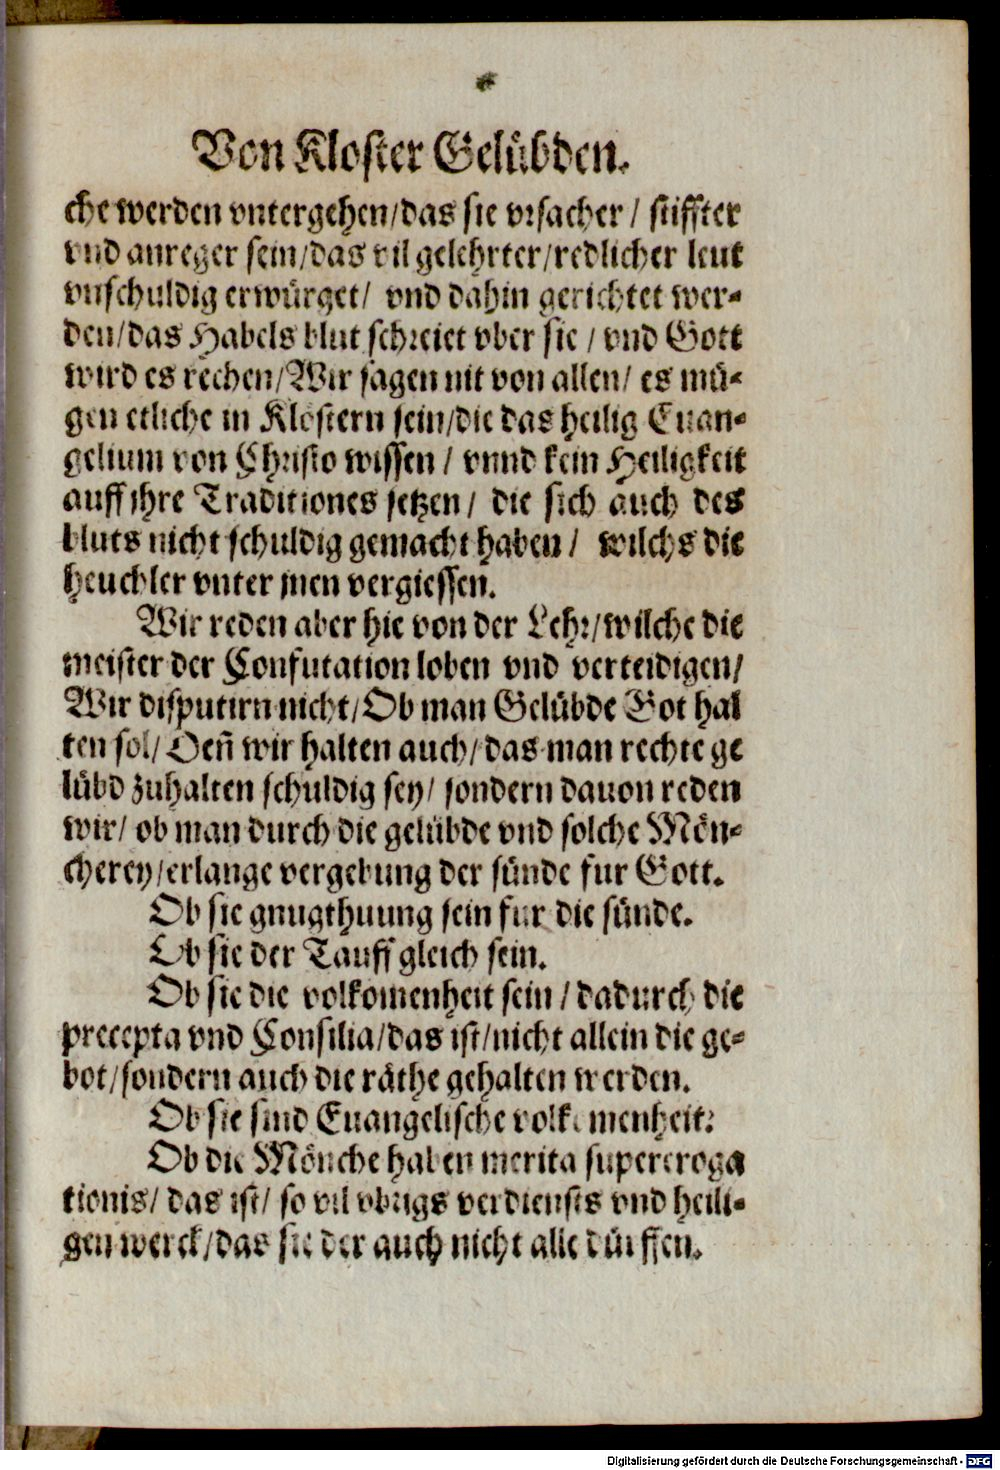 Von Kloster Gelübden.
che werden vntergehen/das sie vrsacher / stiffter
vnd anreger sein/das vil gelehrter/redlicher leut
vnschuldig erwürget/ vnd dahin gerichtet wer-
den/das Habels blut schreiet vber sie / vnd Gott
wird es rechen/Wir sagen nit von allen/ es mü-
gen etliche in Klöstern sein/die das heilig Euan-
gelium von Christo wissen / vnnd kein Heiligkeit
auff ihre Traditiones setzen / die sich auch des
bluts nicht schuldig gemacht haben / wilchs die
heuchler vnter jnen vergiessen.
Wir reden aber hie von der Lehr/wilche die
meister der Confutation loben vnd verteidigen/
Wir disputirn nicht/Ob man Gelübde Got hal
ten sol/ Deñ wir halten auch/das man rechte ge
lübd zuhalten schuldig sey/ sondern dauon reden
wir/ ob man durch die gelübde vnd solche Mön-
cherey/erlange vergebung der sünde fur Gott.
Ob sie gnugthuung sein fur die sünde.
Ob sie der Tauff gleich sein.
Ob sie die volkomenheit sein / dadurch die
precepta vnd Consilia/das ist/nicht allein die ge-
bot/sondern auch die räthe gehalten werden.
Ob sie sind Euangelische volkomenheit:
Ob die Mönche haben merita supereroga
tionis/ das ist/ so vil vbrigs verdiensts vnd heili-
gen werck/das sie der auch nicht alle dürffen.
Digitalisierung gefördert durch die Deutsche Forschungsgemeinschaft - DFG